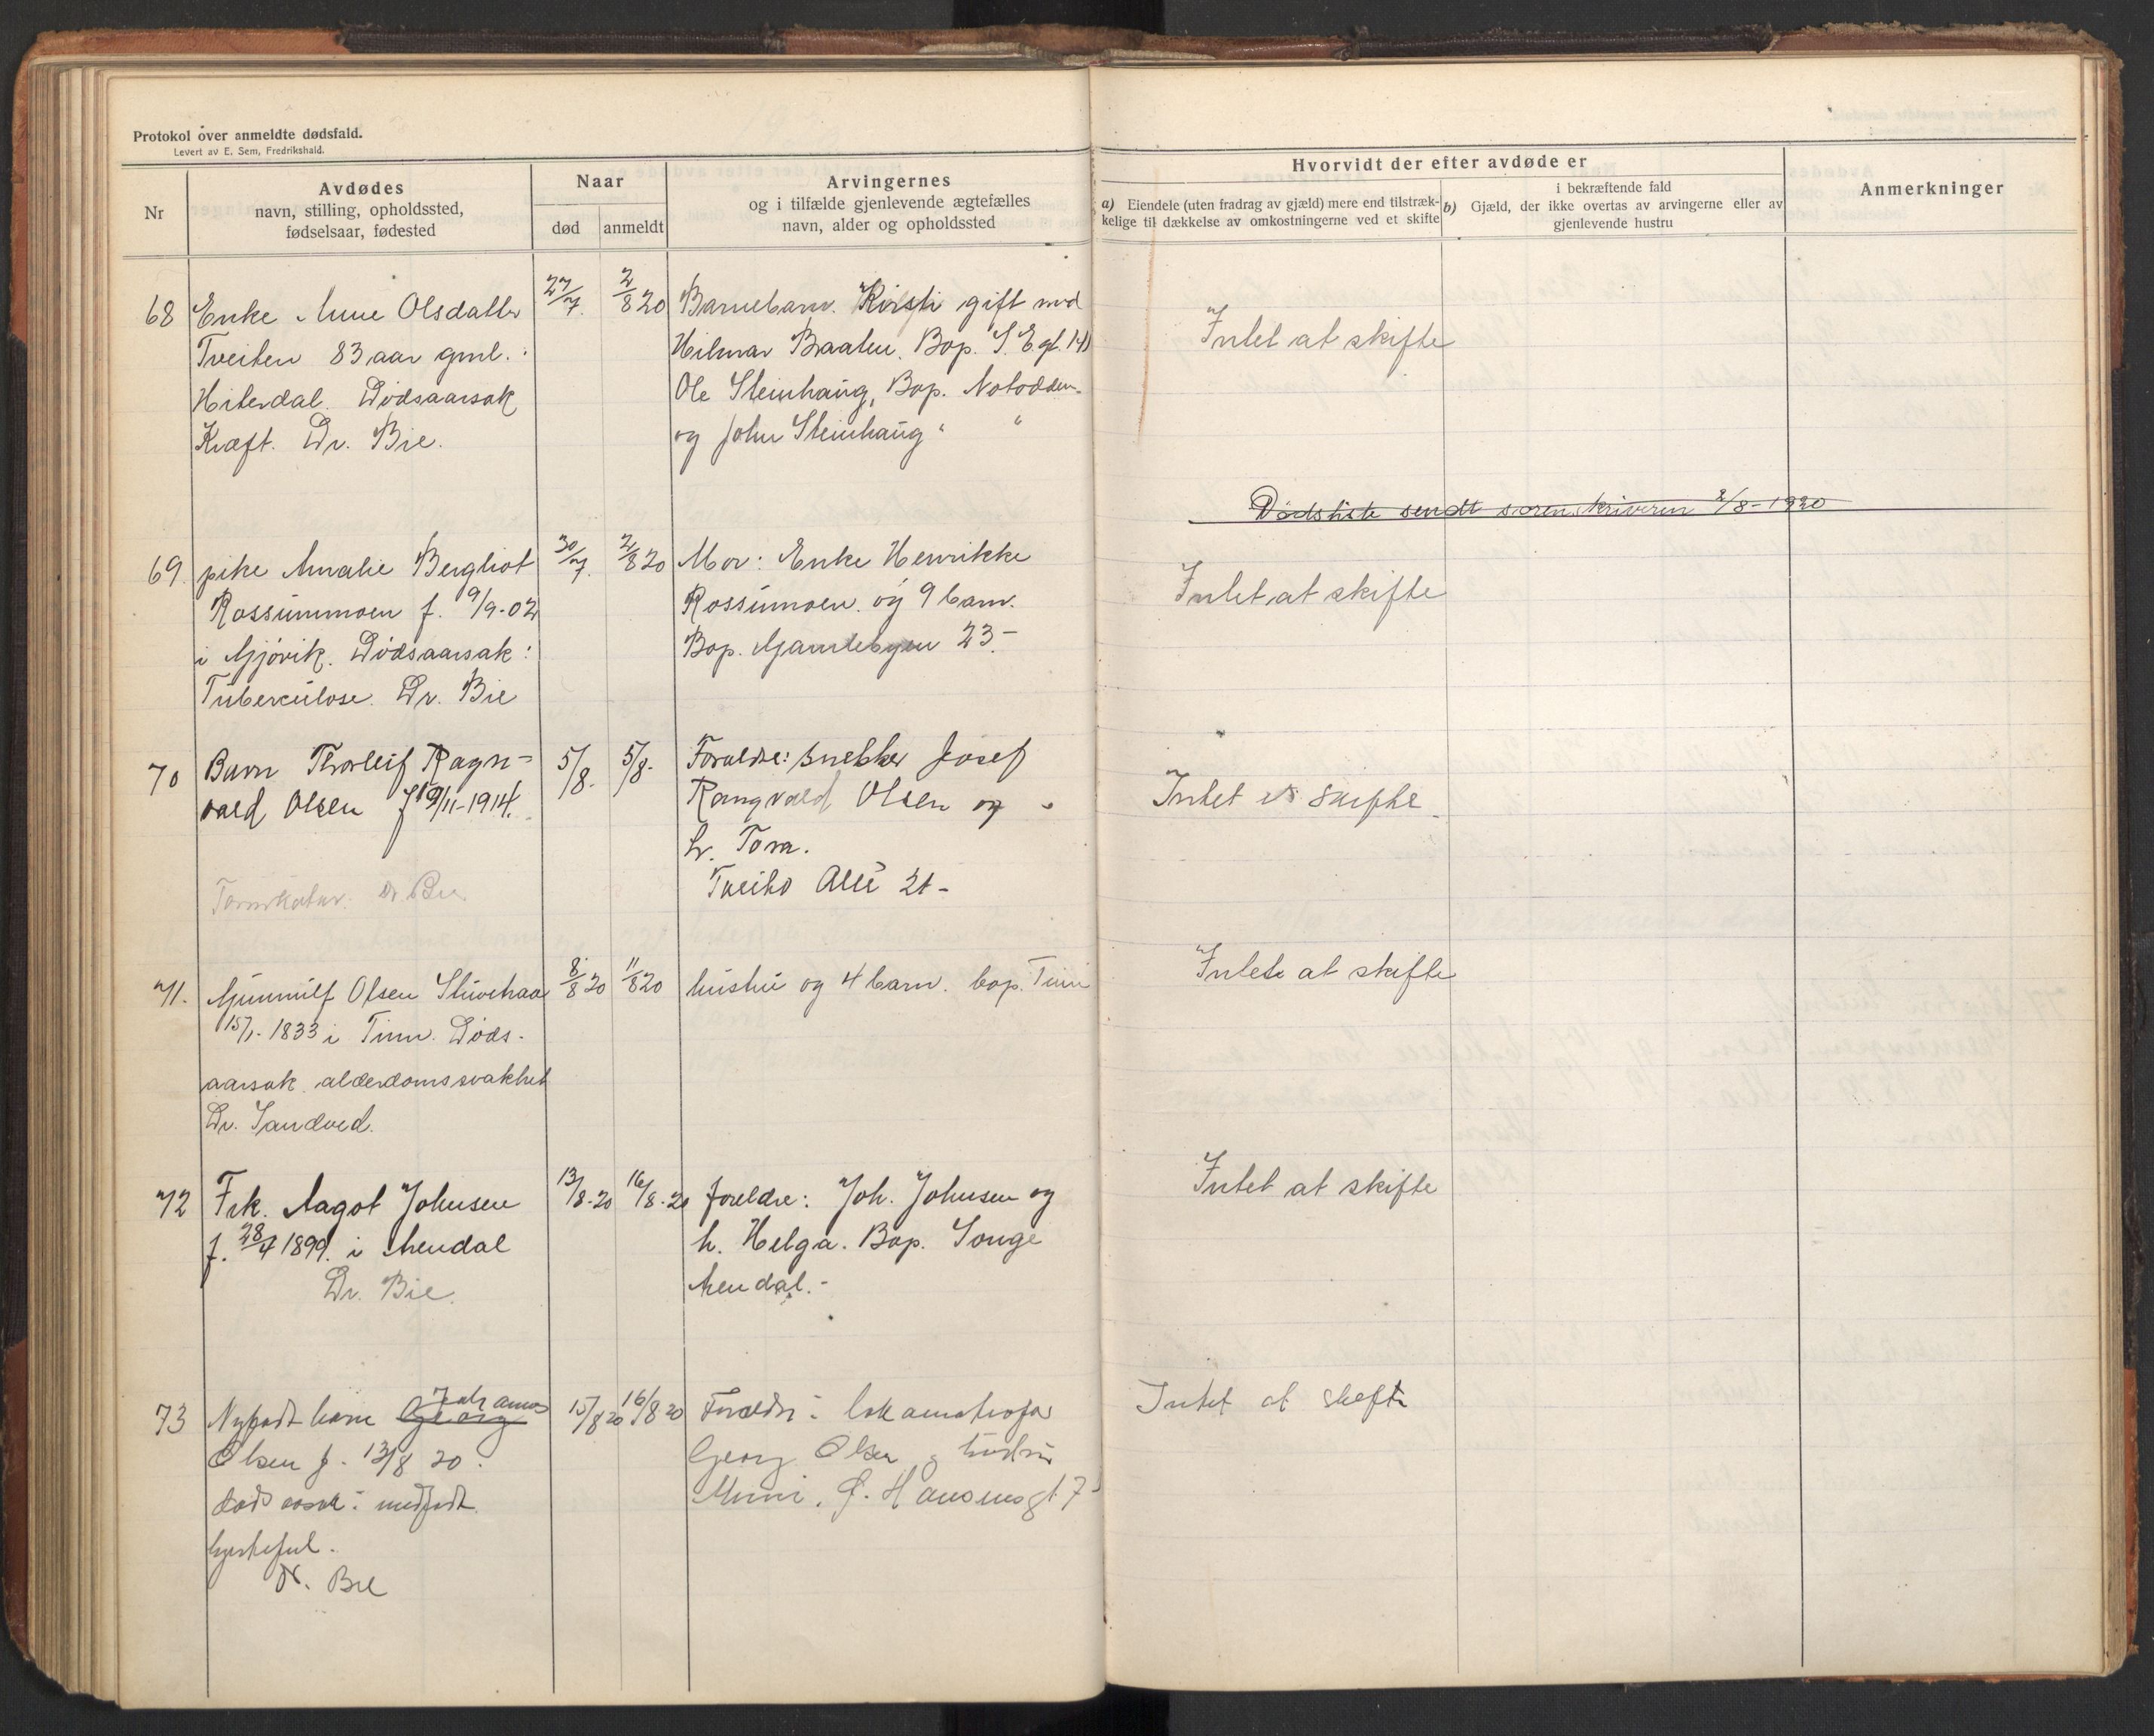 Protokol over anmeldte dødsfald.
Levert av E. Sem, Fredrikshald.
Nr
Avdødes
navn, stilling, opholdssted,
fødselsaar, fødested
Naar
død
anmeldt
Arvingernes
og i tilfælde gjenlevende ægtefælles
navn, alder og opholdssted
Hvorvidt der efter avdøde er
a) Eiendele (uten fradrag av gjæld) mere end tilstræk-
kelige til dækkelse av omkostningerne ved et skifte
i bekræftende fald
b) Gjæld, der ikke overtas av arvingerne eller av
gjenlevende hustru
Anmerkninger
68
Enke Anne Olsdatter
Tveiten 83 aar gml.
Hiterdal. Dødsaarsak
Kræft. Dr. Bie.
27/7.
2/8 20
Barnebarn. Kirsti gift med
Hilmar Braaten. Bop. S. E. gt. 141
Ole Steinhaug, Bop. Notodden.
og John Steinhaug " "
Intet at skifte
Dødsliste sendt sorenskriveren 2/8-1920
69.
pike Amalie Bergliot
Rossummoen f. 9/9-02
i Gjövik. Dødsaarsak:
Tuberculose. Dr. Bie
30/7.
2/8 20
Mor: Enke Henrikke
Rossumoen og 9 barn.
Bop. Gamlebyen 23.-
Intet at skifte
70
Barn Thorleif Ragn-
vald Olsen f 19/11-1914.
Dr Bie
5/8.
5/8.
Foreldre: snekker Josef
Rangvald Olsen og
h. Tora.
Tveito Alle 21-
Intet at skifte
71.
Gunnulf Olsen
15/1-1833 i Tinn. Døds-
aarsak alderdomssvakhet
Dr. Sandved.
8/8 20
11/8 20
hustru og 4 barn. bop. Tinn
Intet at skifte
72
Frk. Aagot Johnsen
f. 28/4 1899. i Arendal
Dr. Bie.
13/8-20
16/8-20
foreldre: Joh. Johnsen og
h. Helga. Bop. Songe
Arendal.-
Intet at skifte
73
Johannes
Nyfødt barn Georg
Olsen f. 13/8 20.
dødsaarsak: medfødt
hjertefeil.
Dr. Bie
15/8 20
16/8 20
Foreldre:
Georg Olsen og hustru
Minni.
Intet at skifte